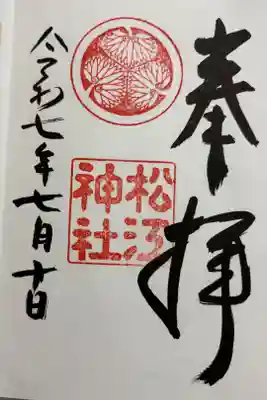 奉拝
松江
神社
令和七年七月十日